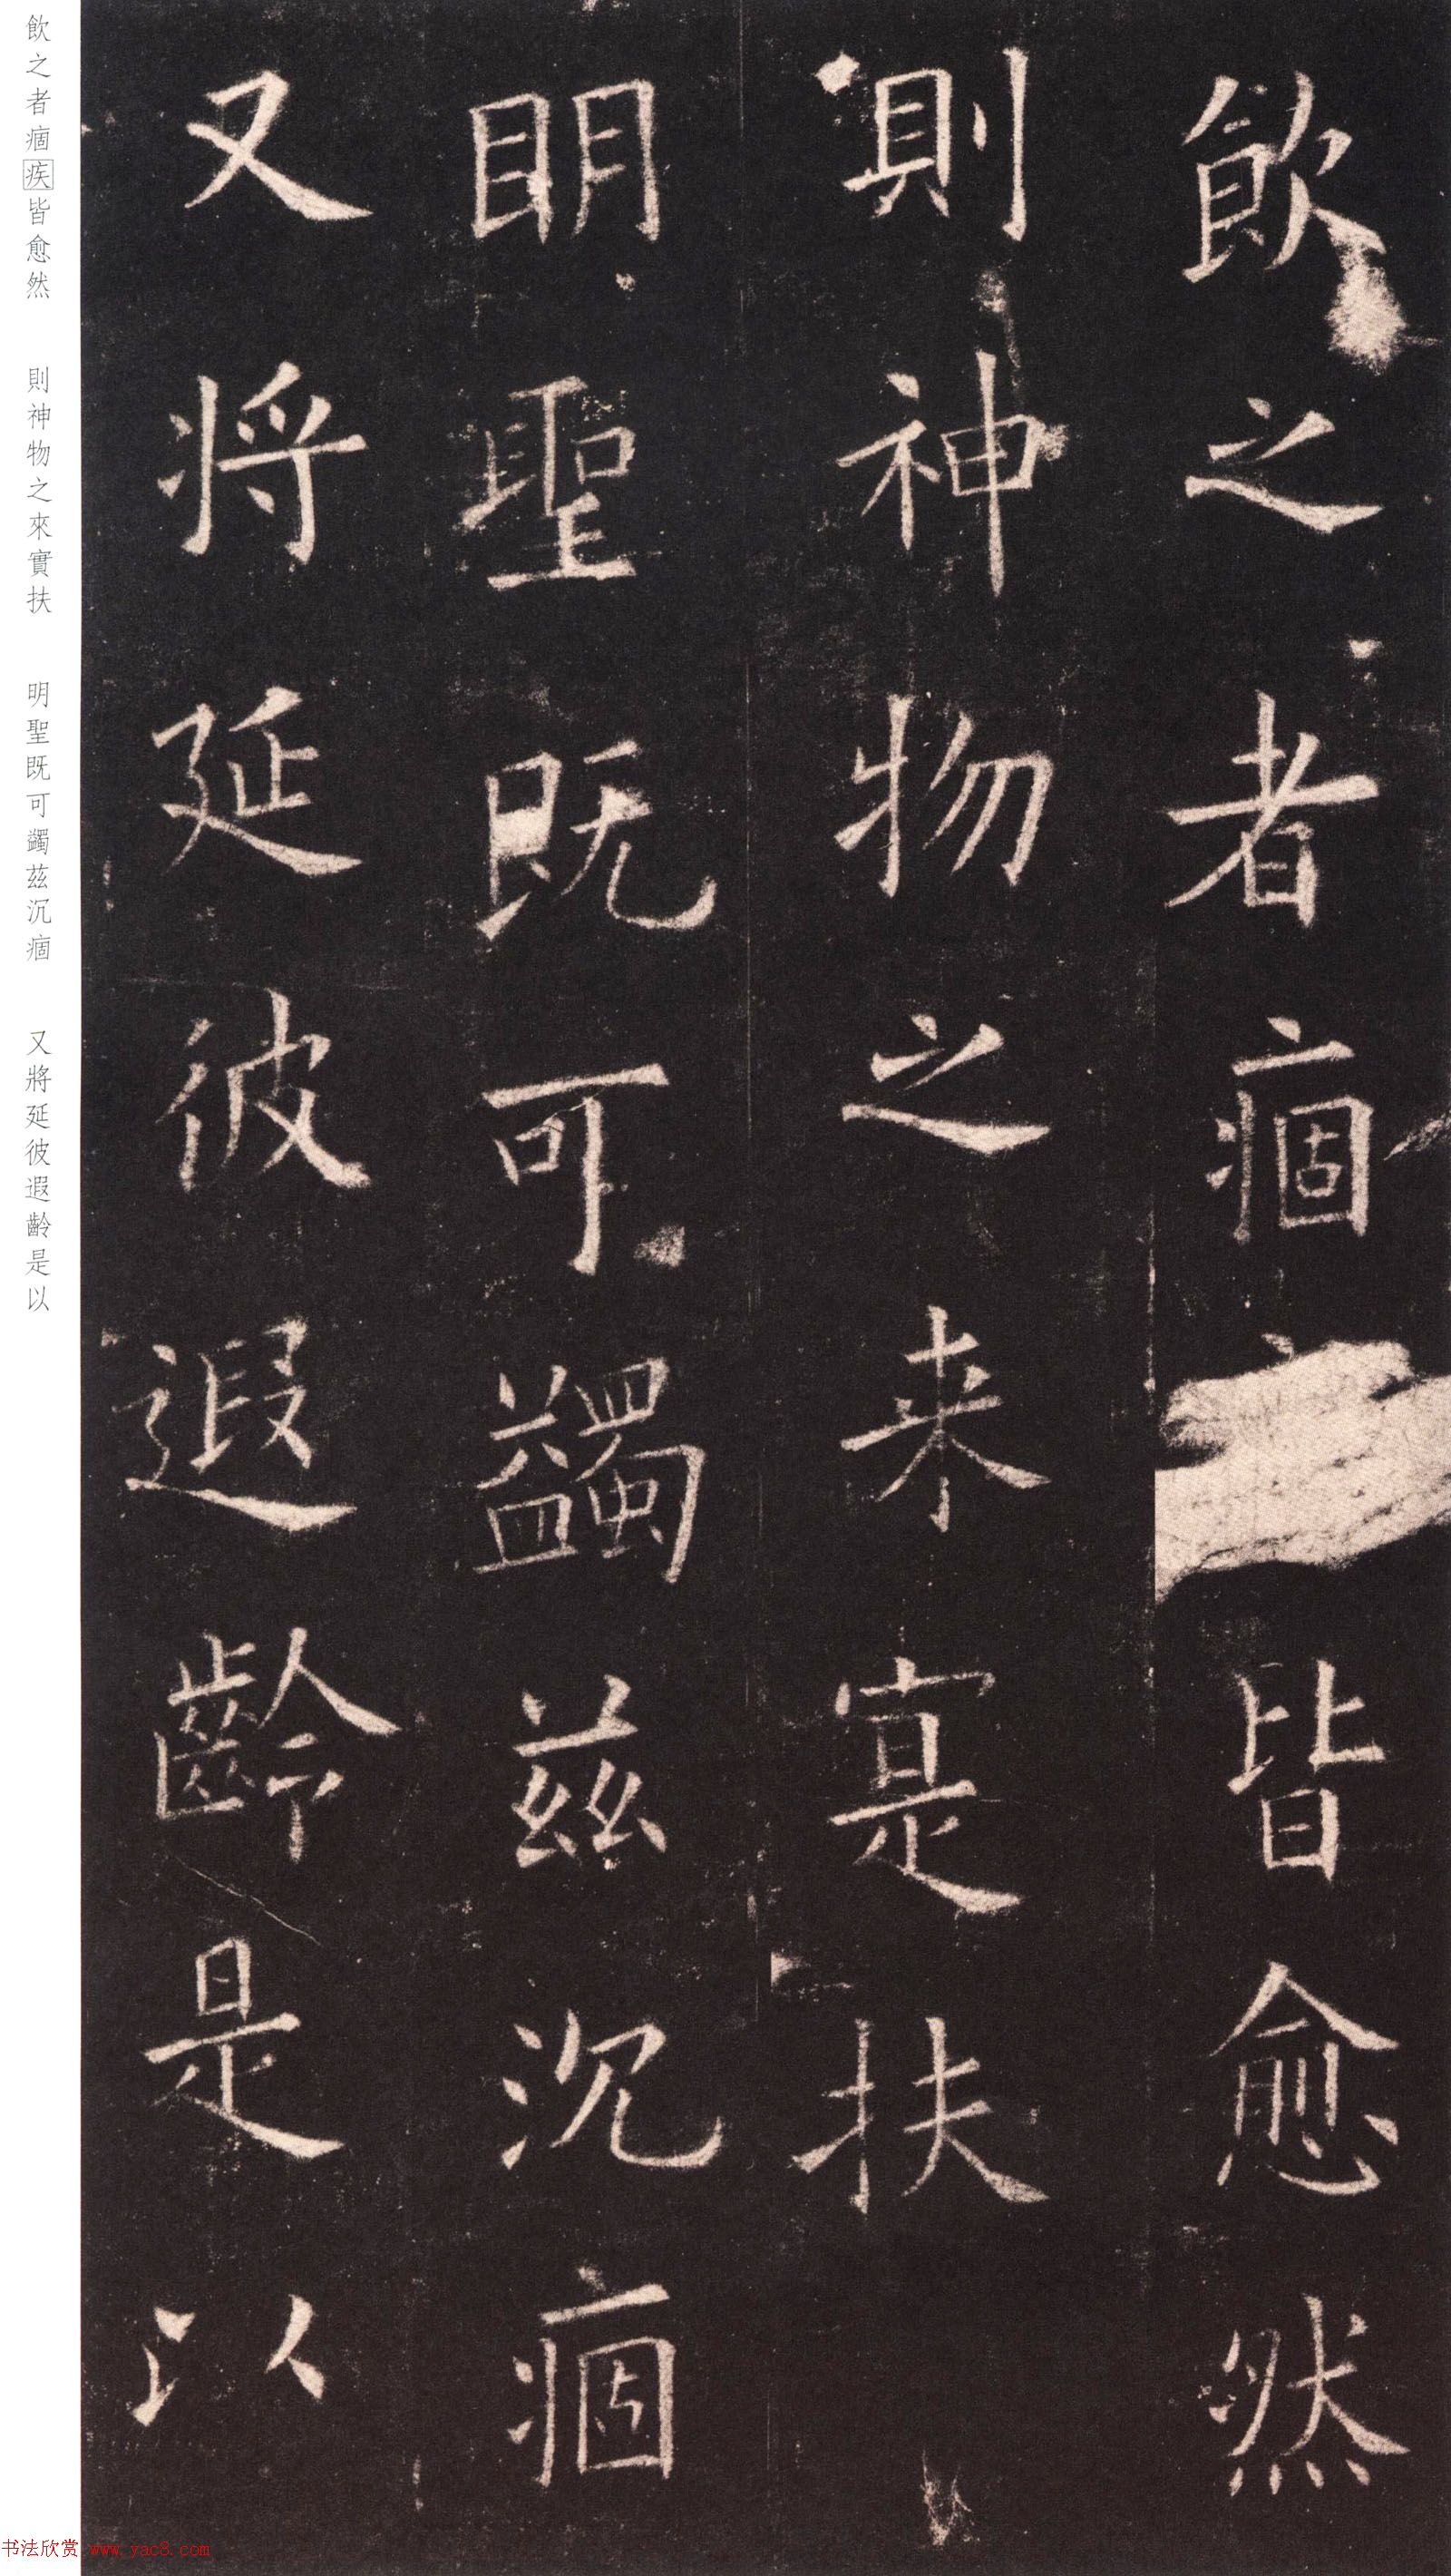 飲之者痼皆愈然
則神物之来寔扶
明聖既可蠲茲沉痼
又将延彼遐齡是以
飲之者痼疾皆愈然　則神物之來實扶　明聖既可蠲茲沉痼　又將延彼遐齡是以
书法欣赏 www.yac8.com